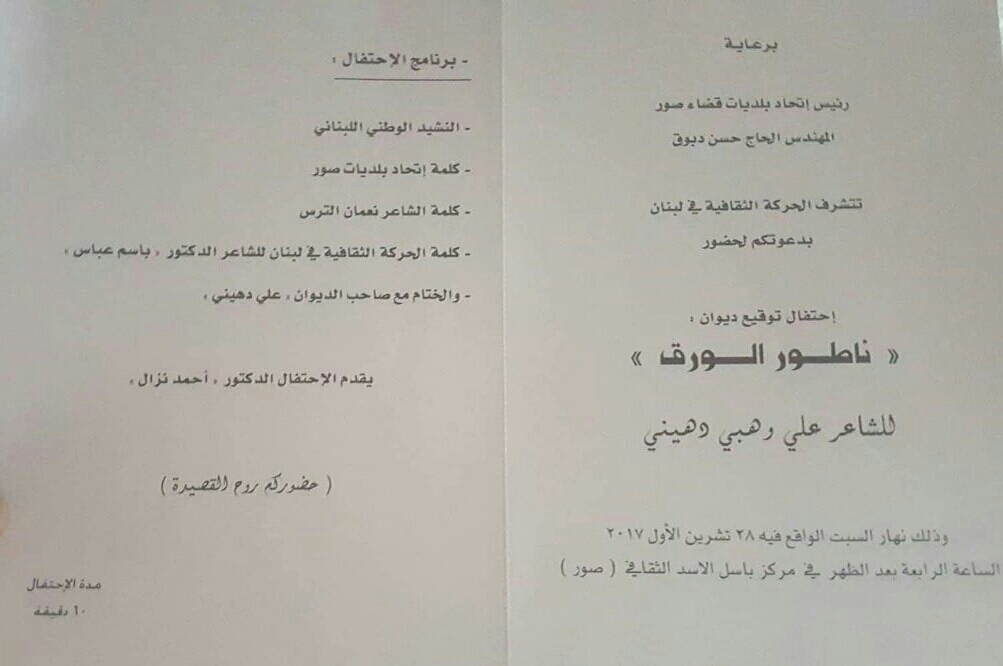 برعاية
رئيس إتحاد بلديات قضاء صور
المهندس الحاج حسن دبوق
تتشرف الحركة الثقافية في لبنان
بدعوتكم لحضور
إحتفال توقيع ديوان :
« ناطور الورق »
للشاعر علي وهبي دهيني
وذلك نهار السبت الواقع فيه ٢٨ تشرين الأول ٢٠١٧
الساعة الرابعة بعد الظهر في مركز باسل الاسد الثقافي ( صور )
- برنامج الإحتفال :
- النشيد الوطني اللبناني
- كلمة إتحاد بلديات صور
- كلمة الشاعر نعمان الترس
- كلمة الحركة الثقافية في لبنان للشاعر الدكتور « باسم عباس »
- والختام مع صاحب الديوان « علي دهيني »
يقدم الإحتفال الدكتور « أحمد نزال »
( حضوركم روح القصيدة )
مدة الإحتفال
٦٠ دقيقة